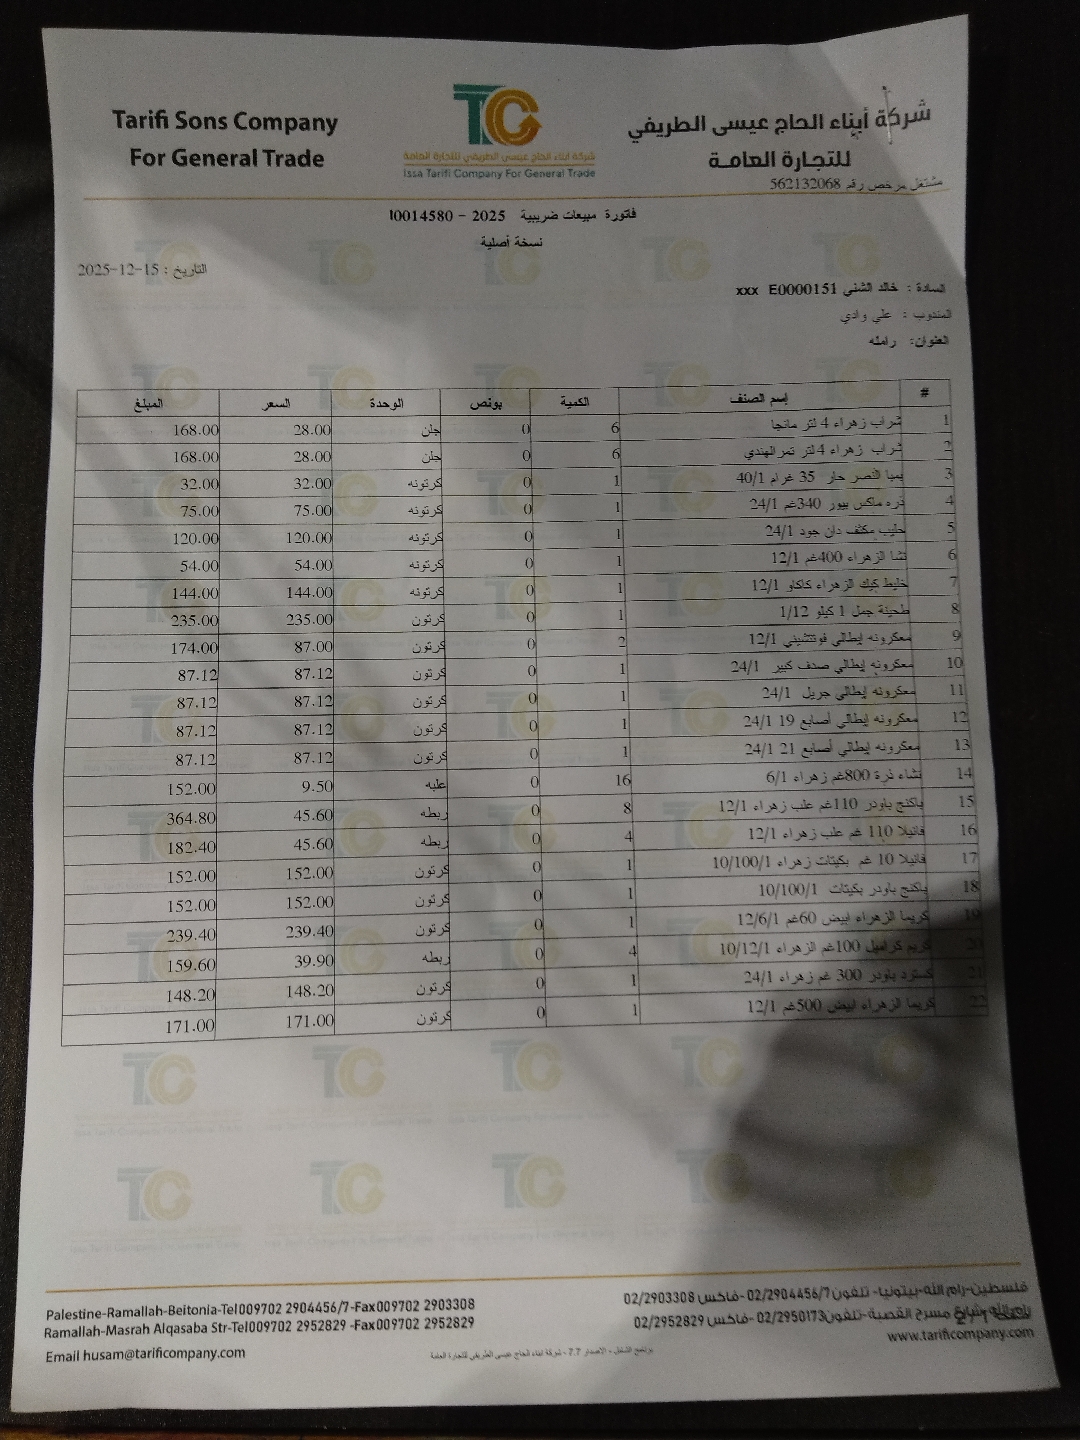 Tarifi Sons Company
For General Trade
TC
شركة أبناء الحاج عيسى الطريفي للتجارة العامة
Issa Tarifi Company For General Trade
شركة أبناء الحاج عيسى الطريفي
للتجارة العامة
مشتغل مرخص رقم 562132068
فاتورة مبيعات ضريبية 2025 - I0014580
نسخة أصلية
التاريخ : 15-12-2025
السادة : خالد الشني xxx E0000151
المندوب : علي وادي
العنوان: رامله
# إسم الصنف الكمية بونص الوحدة السعر المبلغ
1 شراب زهراء 4 لتر مانجا 6 0 جلن 28.00 168.00
2 شراب زهراء 4 لتر تمرالهندي 6 0 جلن 28.00 168.00
3 بميا النصر حار 35 غرام 40/1 1 0 كرتونه 32.00 32.00
4 ذره ماكس بيور 340غم 24/1 1 0 كرتونه 75.00 75.00
5 حليب مكثف دان جود 24/1 1 0 كرتونه 120.00 120.00
6 نشا الزهراء 400غم 12/1 1 0 كرتونه 54.00 54.00
7 خليط كيك الزهراء كاكاو 12/1 1 0 كرتونه 144.00 144.00
8 طحينة جمل 1 كيلو 1/12 1 0 كرتون 235.00 235.00
9 معكرونه إيطالي فوتتشيني 12/1 2 0 كرتون 87.00 174.00
10 معكرونه إيطالي صدف كبير 24/1 1 0 كرتون 87.12 87.12
11 معكرونه إيطالي جريل 24/1 1 0 كرتون 87.12 87.12
12 معكرونه إيطالي أصابع 19 24/1 1 0 كرتون 87.12 87.12
13 معكرونه إيطالي أصابع 21 24/1 1 0 كرتون 87.12 87.12
14 نشاء ذرة 800غم زهراء 6/1 16 0 علبه 9.50 152.00
15 باكنج باودر 110غم علب زهراء 12/1 8 0 ربطه 45.60 364.80
16 فانيلا 110 غم علب زهراء 12/1 4 0 ربطه 45.60 182.40
17 فانيلا 10 غم بكيتات زهراء 10/100/1 1 0 كرتون 152.00 152.00
18 باكنج باودر بكيتات 10/100/1 1 0 كرتون 152.00 152.00
19 كريما الزهراء ابيض 60غم 12/6/1 1 0 كرتون 239.40 239.40
20 كريم كراميل 100غم الزهراء 10/12/1 4 0 ربطه 39.90 159.60
21 كسترد باودر 300 غم زهراء 24/1 1 0 كرتون 148.20 148.20
22 كريما الزهراء ابيض 500غم 12/1 1 0 كرتون 171.00 171.00
Palestine-Ramallah-Beitonia-Tel009702 2904456/7-Fax009702 2903308
Ramallah-Masrah Alqasaba Str-Tel009702 2952829 -Fax009702 2952829
Email husam@tarificompany.com
فلسطين-رام الله-بيتونيا- تلفون 02/2904456/7 -فاكس 02/2903308
رام الله شارع مسرح القصبة-تلفون 02/2950173 -فاكس 02/2952829
www.tarificompany.com
برنامج الشامل - الاصدار 7.7 - شركة ابناء الحاج عيسى الطريفي للتجارة العامة